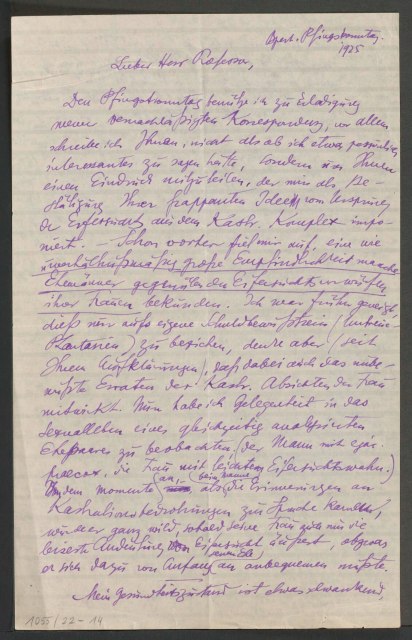 Bpest. Pfingstsonntag.
1925
Lieber Herr Professor,
Den Pfingstsonntag benütze ich zu Erledigung
meiner vernachlässigten Korrespondenz, vor allem
schreibe ich Ihnen, nicht als ob ich etwas persönlich
interessantes zu sagen hätte, sondern um Ihnen
einen Eindruck mitzuteilen, der mir als Be-
stätigung Ihrer frappanten Ideen vom Ursprung
der Eifersucht aus dem Kastr. Komplex impo-
nierte. – Schon vorher fiel mir auf, eine wie
unverhältnismässig große Empfindlichkeit manche
Ehemänner gegenüber den Eifersichtsvorwürfen
ihrer Frauen bekunden. Ich war früher geneigt,
dieß nur aufs eigene Schuldbewußtsein (Untreue-
Phantasien) zu beziehen, denke aber seit
Ihren Aufklärungen, daß dabei auch das unbe-
wußte Erraten der Kastr. Absichten der Frau
mitwirkt. Nun habe ich Gelegenheit in das
Sexualleben eines gleichzeitig analysierten
Ehepaares zu beobachten (der Mann mit ejac.
praecox, die Frau mit leichtem Eifersichtswahn.)
Von dem Momente an, als beim Manne die Erinnerungen an
Kastrationsbedrohungen zur Sprache kamen,
wurde er ganz wild, sobald seine Frau auch nur die
leiseste Andeutung von Eifersucht äußert, obzwar
er sich dazu von Anfang an anbequemen mußte.
Mein Gesundheitszustand ist etwas schwankend,
1055/22-14